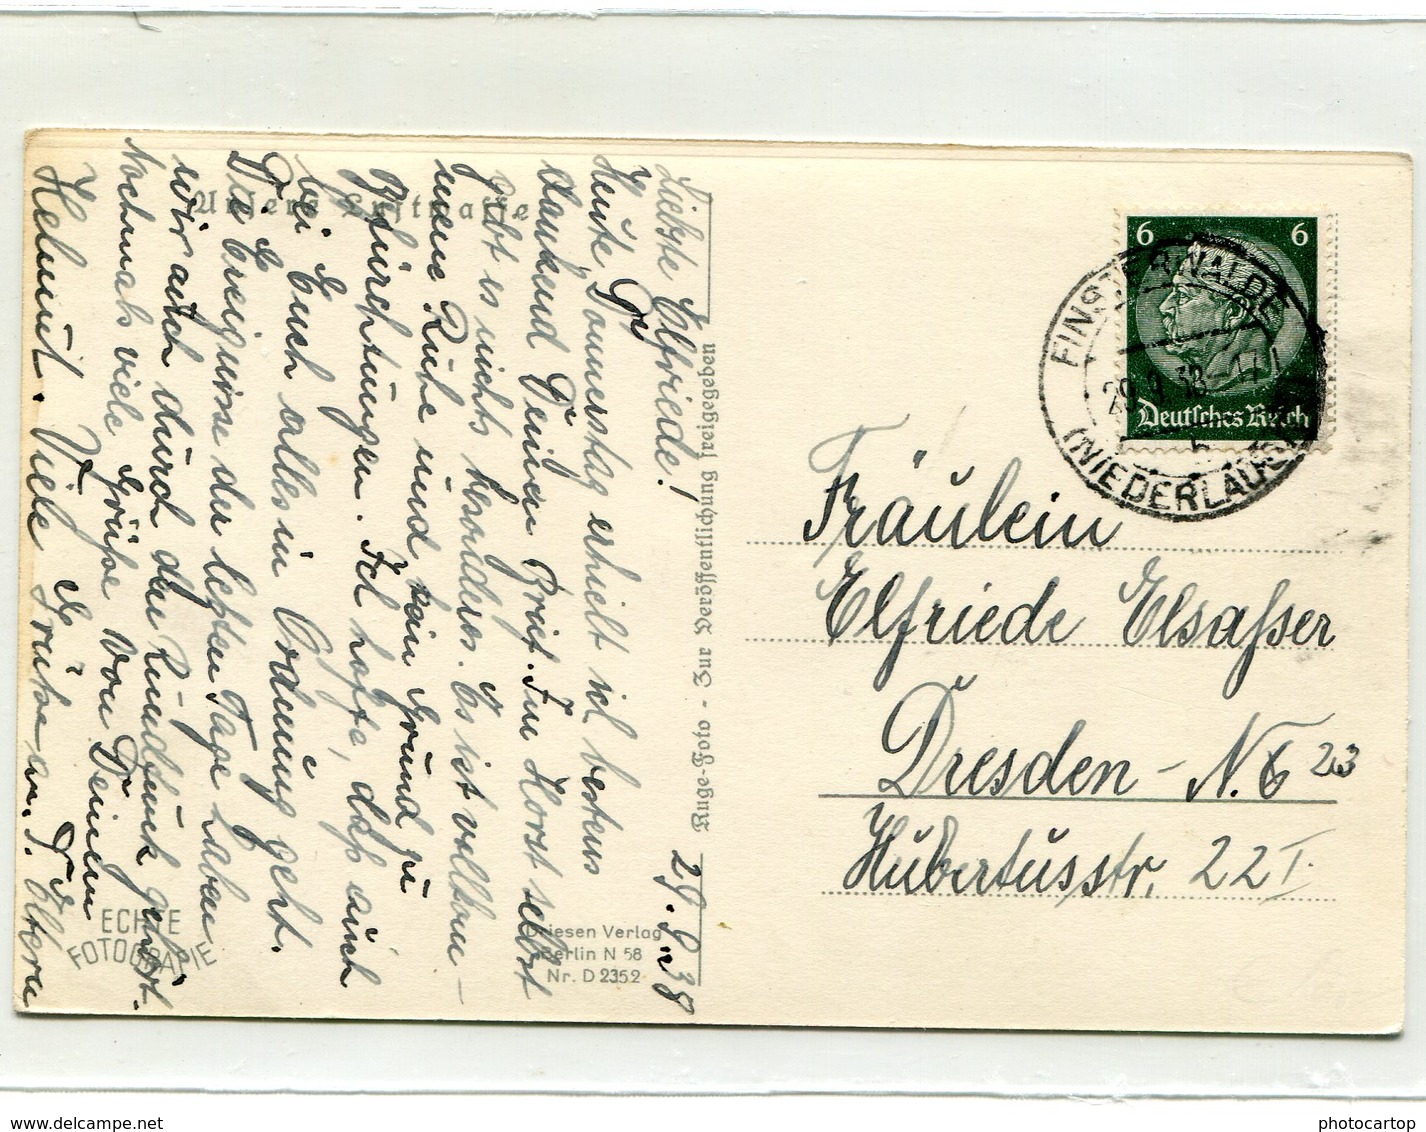 29.9.38
Liebste Elfriede!
Heute Donnerstag erhielt ich bestens
dankend Deinen Brief. Im Horst selbst
gibt es nichts besonderes. Es ist vollkom-
mene Ruhe und kein Grund zu
Befürchtungen. Ich hoffe, daß auch
bei Euch alles in Ordnung geht.
Die Ereignisse der letzten Tage haben
wir auch durch den Rundfunk gehört.
Nochmals viele Grüße von Deinem
Helmut. Viele Grüße an. D. Eltern
Unsere Luftwaffe
Ruge-Foto - Zur Veröffentlichung freigegeben
ECHTE
FOTOGRAFIE
Driesen Verlag
Berlin N 58
Nr. D 2352
6 6
Deutsches Reich
FINSTERWALDE
29.9.38-17
(NIEDERLAUSITZ)
Fräulein
Elfriede Elsaßer
Dresden-N. 6 23
Hubertusstr. 22 I
www.delcampe.net
photocartop